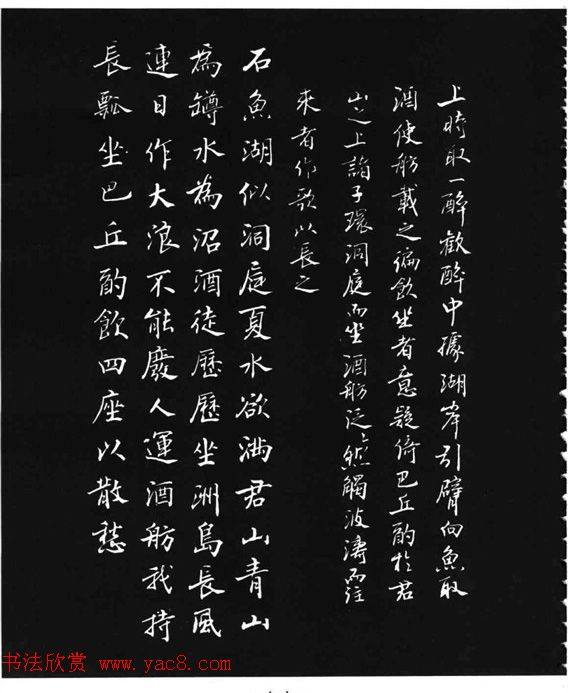 上時取一醉歡醉中據湖岸引臂向魚取
酒使舫載之徧飲坐者意疑倚巴丘酌於君
山之上諸子環洞庭而坐酒舫泛〻然觸波濤而往
來者作歌以長之
石魚湖似洞庭夏水欲滿君山青山
為罇水為沼酒徒歷歷坐洲島長風
連日作大浪不能廢人運酒舫我持
長瓢坐巴丘酌飲四座以散愁
书法欣赏 www.yac8.com